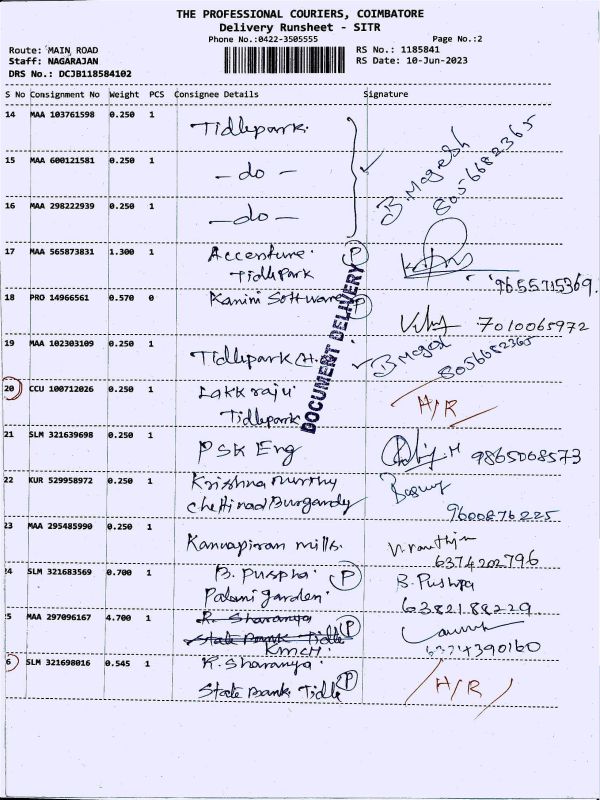 THE PROFESSIONAL COURIERS, COIMBATORE
Delivery Runsheet - SITR
Phone No.:0422-3505555 Page No.:2
Route: MAIN ROAD RS No.: 1185841
Staff: NAGARAJAN RS Date: 10-Jun-2023
DRS No.: DCJB118584102
S No Consignment No Weight PCS Consignee Details Signature
14 MAA 103761598 0.250 1 Tidlepark.
B. Mogesh
8056682365
15 MAA 600121581 0.250 1 - do -
16 MAA 298222939 0.250 1 - do -
17 MAA 565873831 1.300 1 Accenture. P
Tidlepark
9655715369.
18 PRO 14966561 0.570 0 Kanini Software P
7010065972
DOCUMENT DELIVERY
19 MAA 102303109 0.250 1 Tidlepark
8056682365
20 CCU 100712026 0.250 1 Lakkraju H/R
Tidlepark
21 SLM 321639698 0.250 1 PSK Eng 9865068573
22 KUR 529958972 0.250 1 Krishna murthy
Chettinad Burgandy 9600876225
23 MAA 295485990 0.250 1 Kannapiran mills.
6374202796
24 SLM 321683569 0.700 1 B. Puspha. P B. Pushpa
Palani garden. 6382188229
25 MAA 297096167 4.700 1 R. Sharanya P
State Bank Tidle
KMCH. 6374390160
26 SLM 321698016 0.545 1 R. Sharanya.
State Bank Tidle P H/R